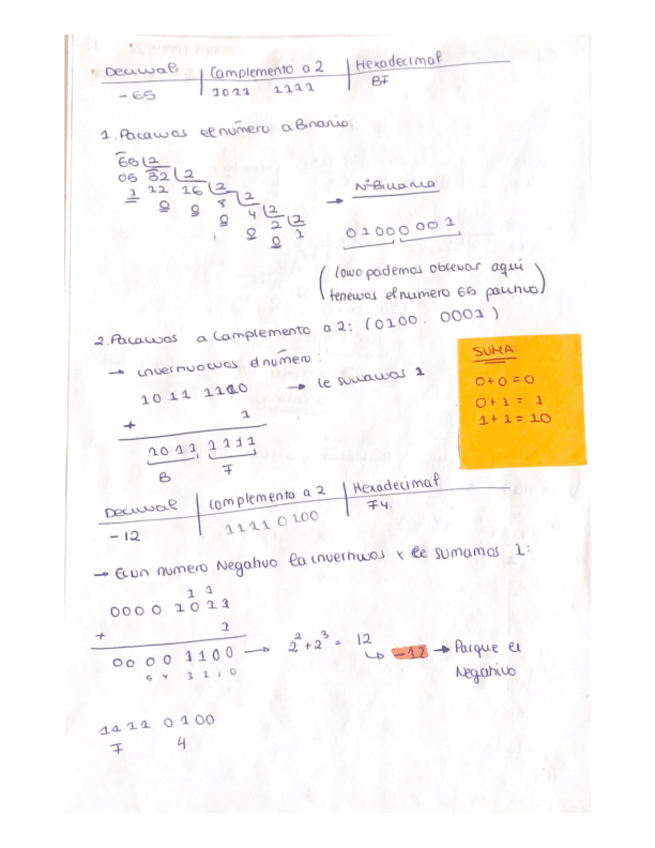 Decimal Complemento a 2 Hexadecimal
-65 1011 1111 BF
1. Pasamos el número a Binario:
65 2
05 32 2
1 12 16 2
0 0 8 2
0 4 2
0 2 2
0 1
→ Nº Binario
0100 0001
(Como podemos observar aquí
tenemos el numero 65 positivo)
2. Pasamos a Complemento a 2: (0100. 0001)
→ invertimos el número:
1011 1110 → le sumamos 1
+ 1
1011 1111
B F
SUMA
0+0=0
0+1= 1
1+1= 10
Decimal Complemento a 2 Hexadecimal
-12 1111 0100 F4.
→ Es un numero Negativo la invertimos y le sumamos 1:
1 1
0000 1011
+ 1
00 00 1100 → 2² + 2³ = 12
5 4 3 2 1 0
↳ -12 → Porque es
Negativo
1111 0100
F 4